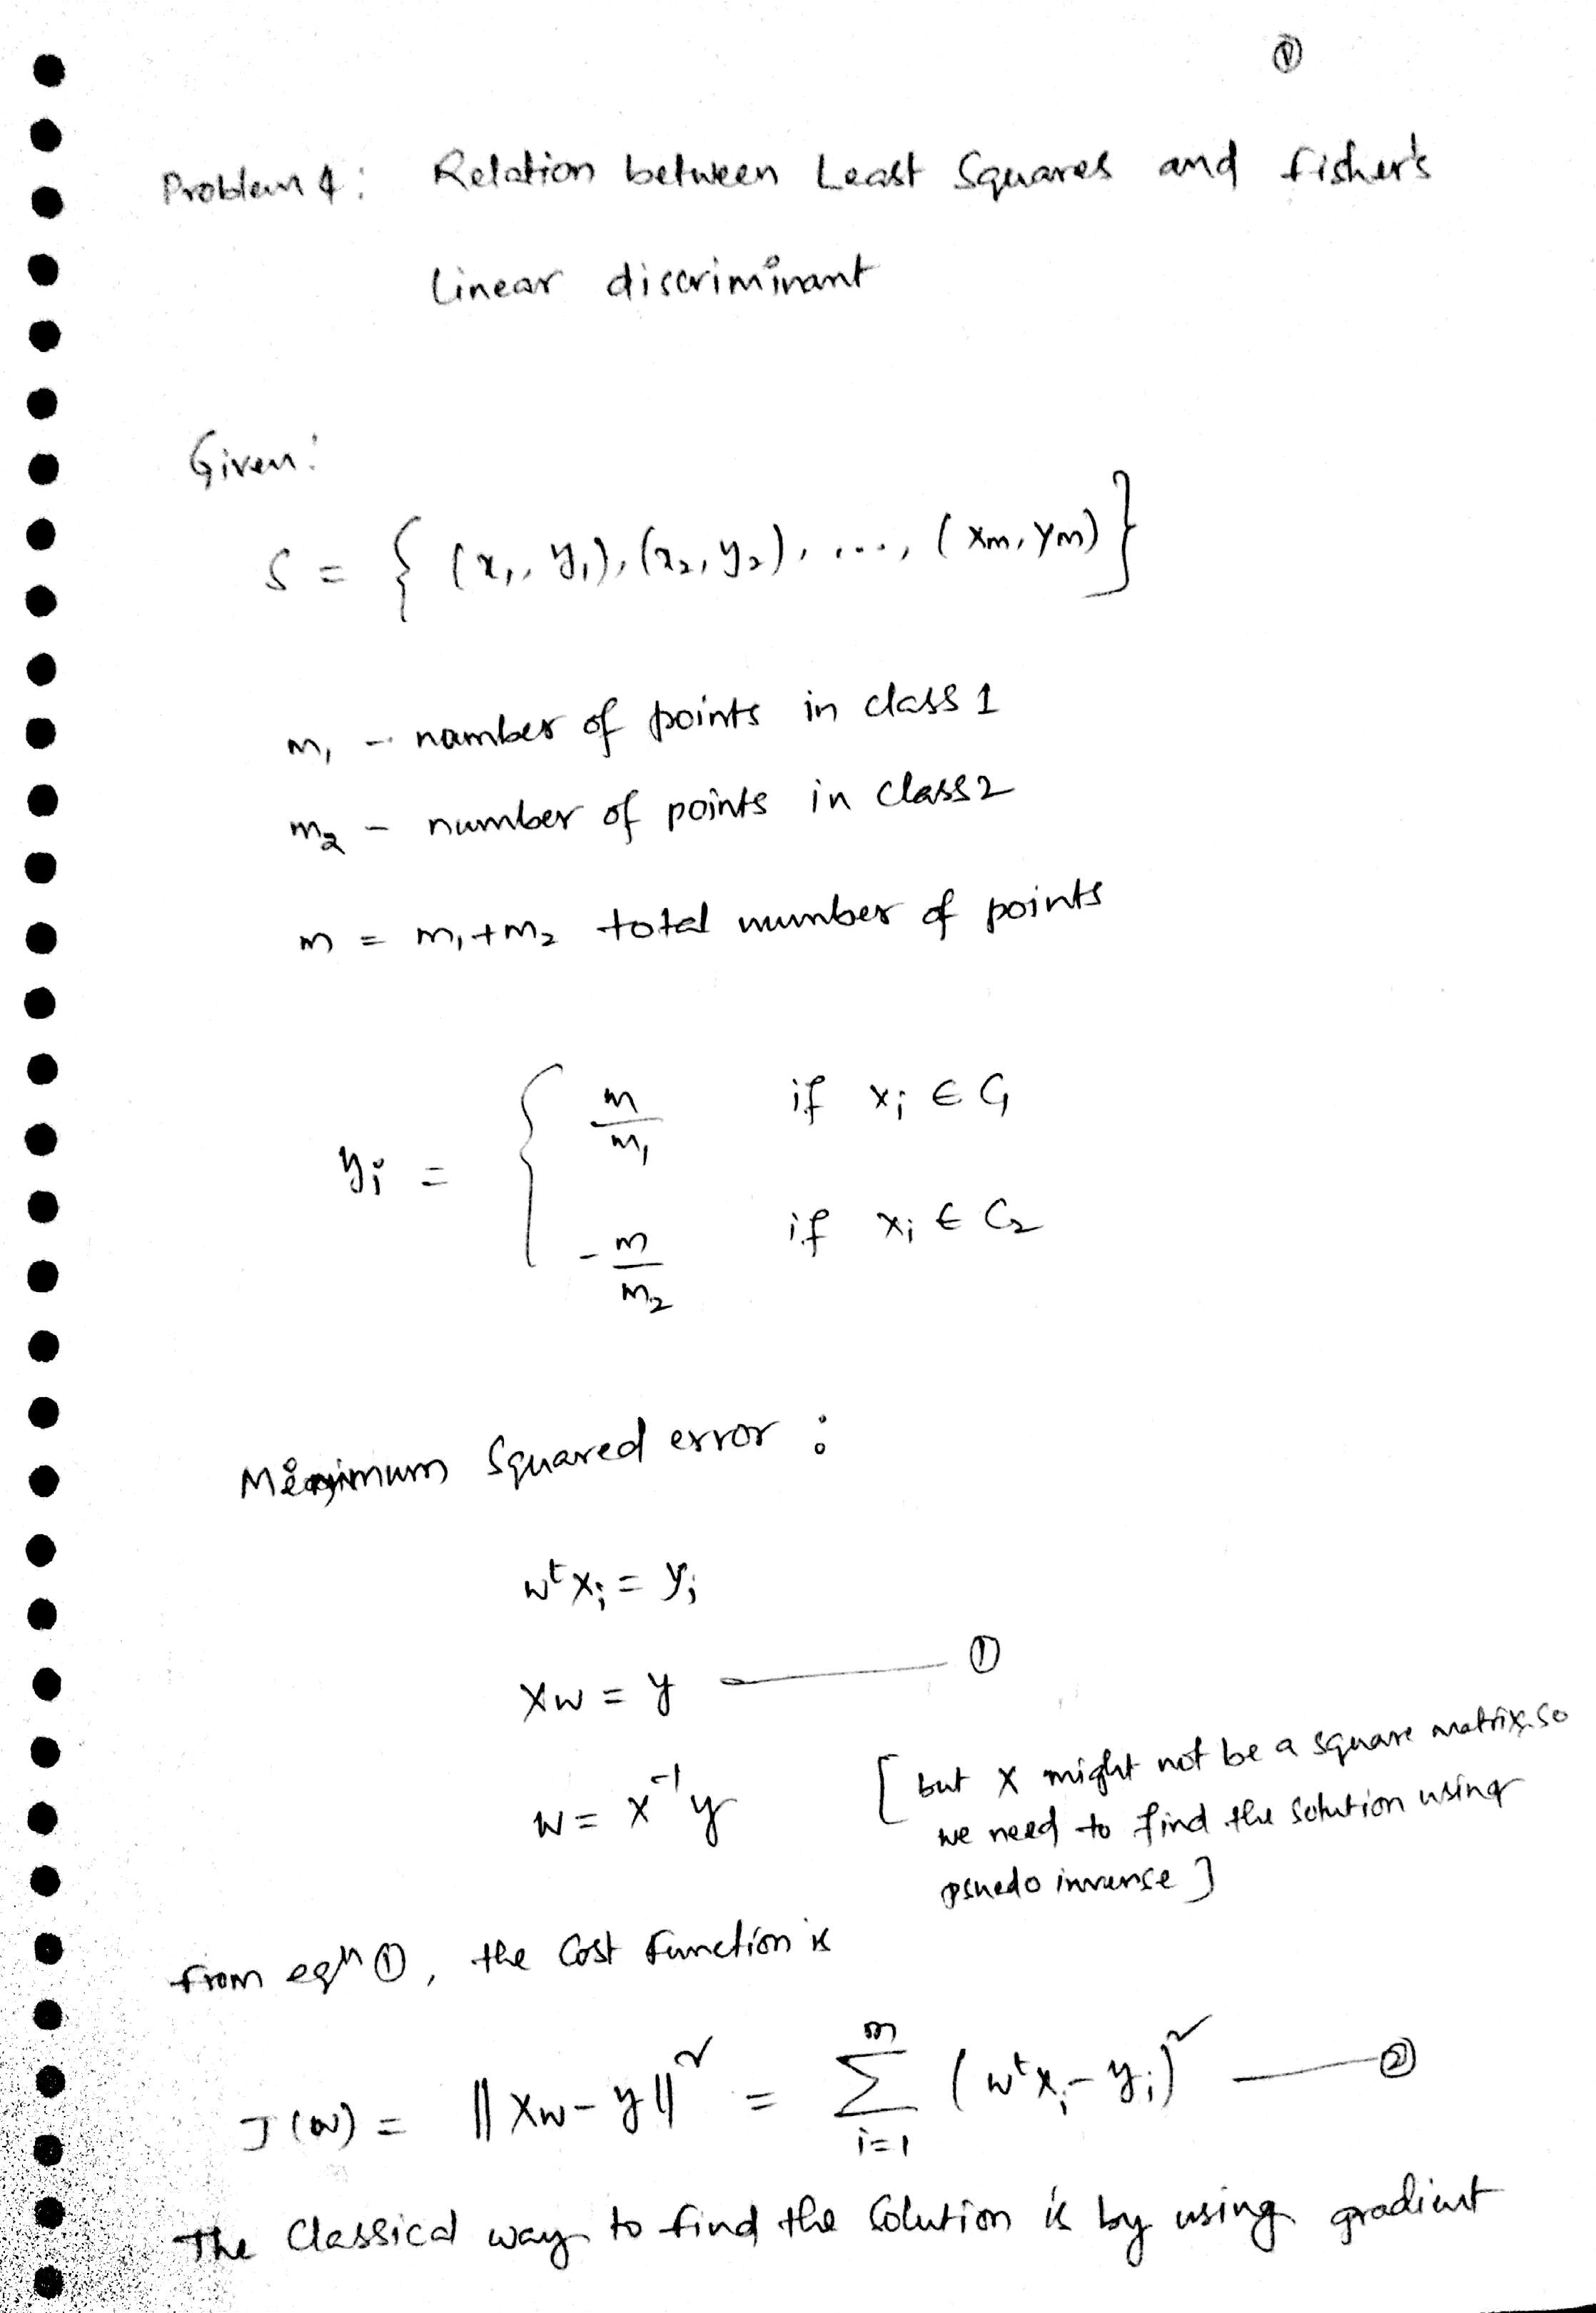 ①
Problem 4: Relation between Least Squares and fisher's
linear discriminant
Given:
S = { (x₁, y₁), (x₂, y₂), ...., (xm, ym) }
m₁ - number of points in class 1
m₂ - number of points in class 2
m = m₁+m₂ total number of points
yᵢ = { m/m₁ if xᵢ ∈ C₁
-m/m₂ if xᵢ ∈ C₂
Minimum Squared error :
wᵗxᵢ = yᵢ
Xw = y ——— ①
w = X⁻¹y [ but X might not be a square matrix. so
we need to find the solution using
psuedo inverse ]
from eqⁿ ①, the Cost Function is
J(w) = ||Xw - y||² = Σᵢ₌₁ᵐ (wᵗxᵢ - yᵢ)² ——— ②
The Classical way to find the Solution is by using gradient